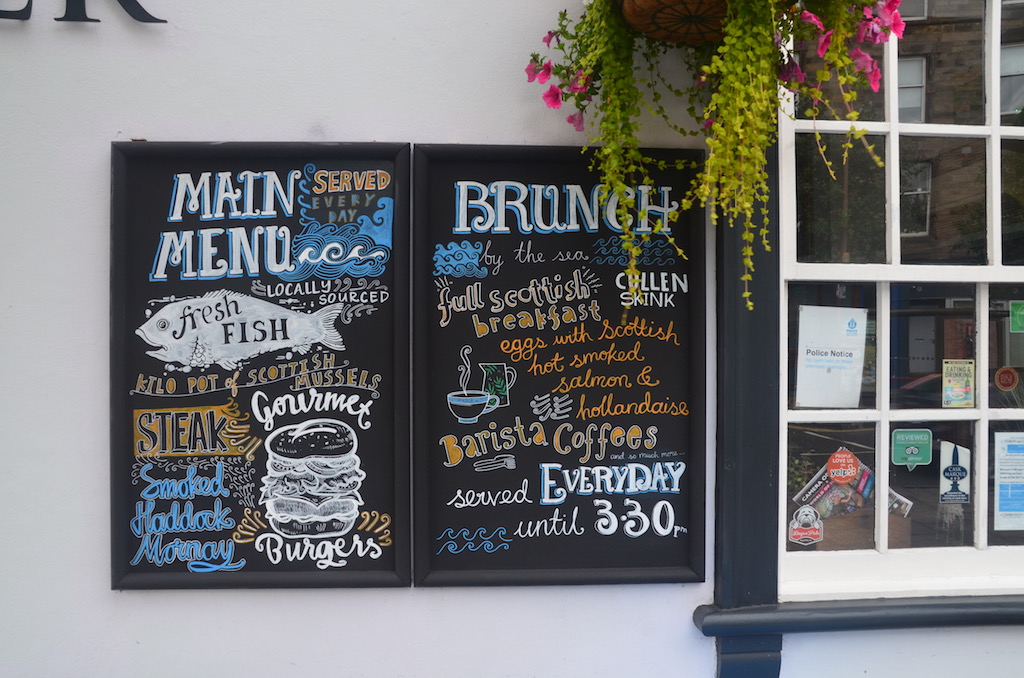 ER
MAIN
MENU
SERVED
EVERY
DAY
LOCALLY
SOURCED
fresh
FISH
KILO POT of SCOTTISH
MUSSELS
STEAK
Gourmet
Burgers
Smoked
Haddock
Mornay
BRUNCH
by the sea
full scottish
breakfast
CULLEN
SKINK
eggs with Scottish
hot smoked
salmon &
hollandaise
Barista Coffees
and so much more...
served EVERYDAY
until 3.30pm
Police Notice
EATING &
DRINKING
REVIEWED
PEOPLE
LOVE US
ON
yelp
CASK
MARQUE